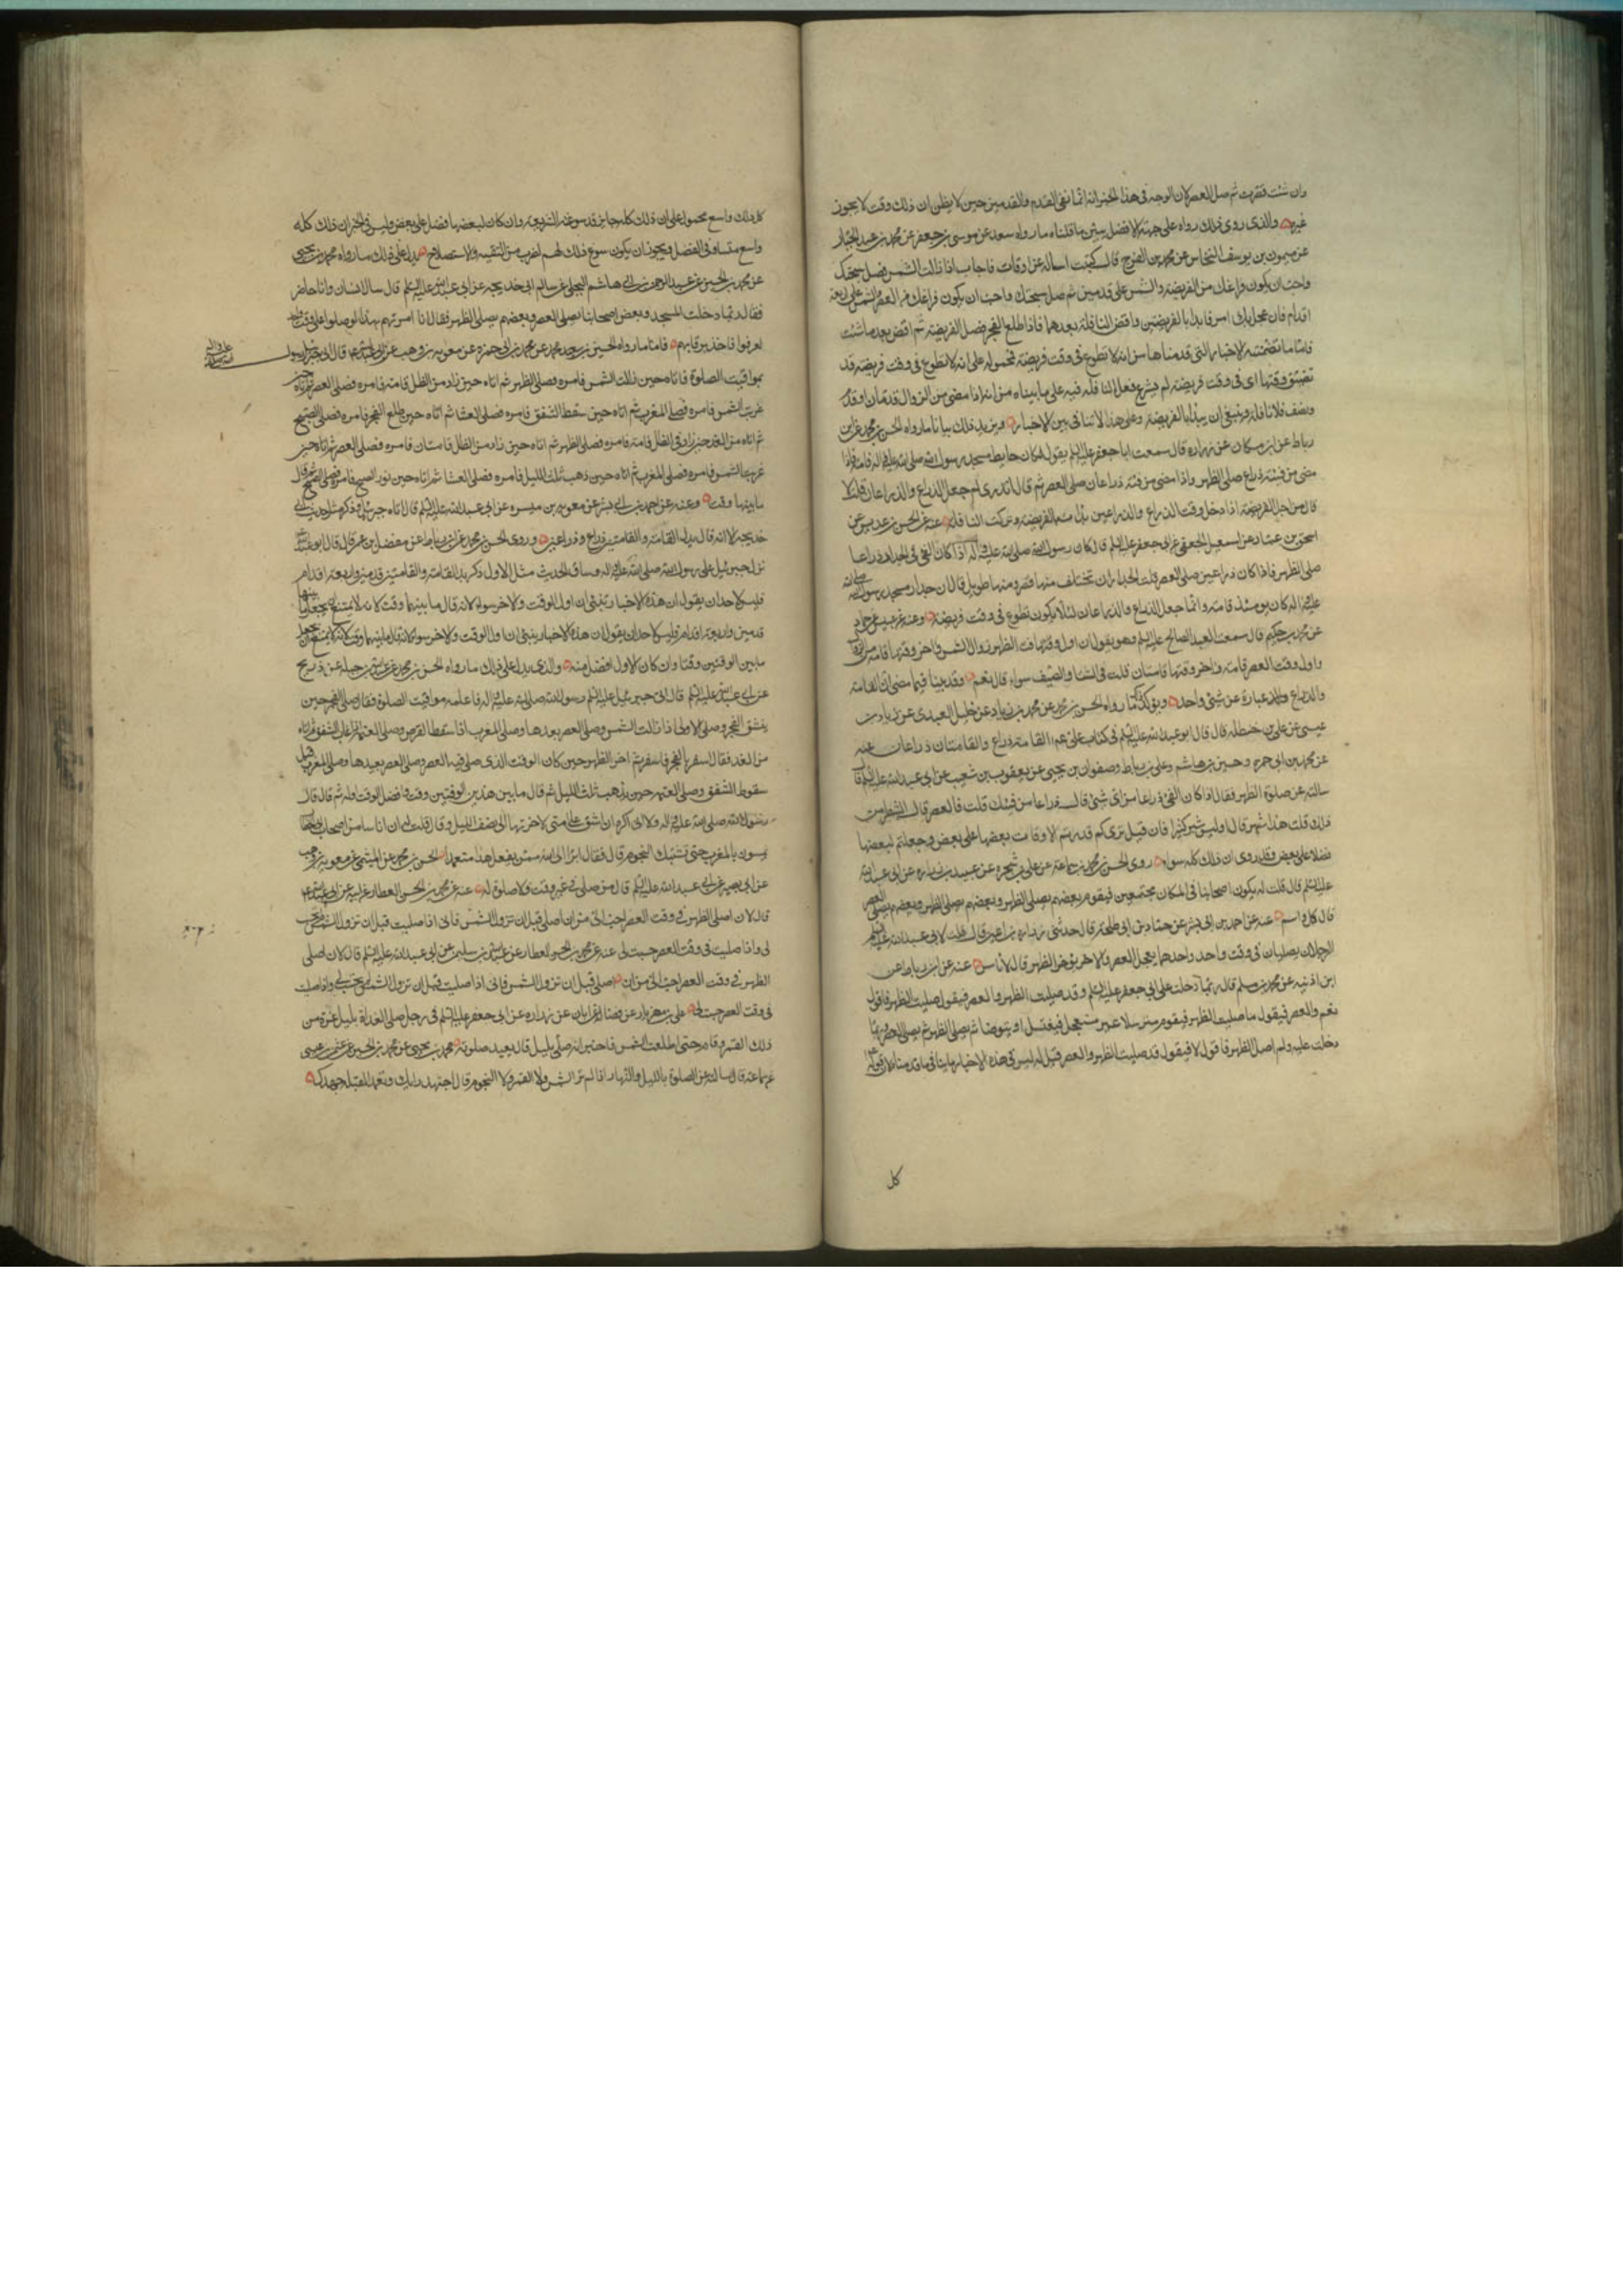 وان شئت قصرت ثم صل العصر لان الوجه في هذا الخبر انه انما نفى القدم والقدمين حين لا يظن ان ذلك وقت لا يجوز
غيره والذي روى ذلك رواه على جهة الافضل يبين ما قلناه ما رواه سعد عن موسى بن جعفر عن محمد بن عبد الجبار
عن ميمون بن يوسف النخاس عن محمد بن الفرج قال كتبت اساله عن اوقات فاجاب اذا زالت الشمس فصل سبحتك
واحب ان يكون فراغك من الفريضة والشمس على قدمين ثم صل سبحتك واحب ان يكون فراغك من العصر والشمس على اربعة
اقدام فان عجل بك امر فابدا بالفريضتين واقض النافلة بعدهما فاذا طلع الفجر فصل الفريضة ثم اقض بعد ما شئت
فاما ما تضمنته الاخبار التي قدمناها من انه لا تطوع في وقت فريضة فمحمولة على انه لا تطوع في وقت فريضة قد
تضيق وقتها اى في وقت فريضة لم يشرع فعل النافلة فيه على ما بيناه من انه اذا مضى من الزوال قدمان او قدم
ونصف فلا نافلة وينبغي ان يبدا بالفريضة وعلى هذا لا تنافي بين الاخبار ويزيد ذلك بيانا ما رواه الحسن بن محمد عن ابن
رباط عن ابن مسكان عن زراره قال سمعت ابا جعفر عليه السلم يقول كان حايط مسجد رسول الله صلى الله عليه واله قامة فاذا
مضى من فيئه ذراع صلى الظهر واذا مضى من فيئه ذراعان صلى العصر ثم قال اتدرى لم جعل الذراع والذراعان قلت لا
قال من اجل الفريضة اذا دخل وقت الذراع والذراعين بدات بالفريضة وتركت النافلة عنه عن الحسن بن عديس عن
اسحق بن عمار عن اسمعيل الجعفي عن ابي جعفر عليه السلم قال كان رسول الله صلى الله عليه واله اذا كان الفئ في الجدار ذراعا
صلى الظهر فاذا كان ذراعين صلى العصر قلت الجدران تختلف منها قصير ومنها طويل قال ان جدار مسجد رسول الله صلى الله
عليه واله كان يومئذ قامة وانما جعل الذراع والذراعان لئلا يكون تطوع في وقت فريضة وعنه عن عبيس عن حماد
عن محمد بن حكيم قال سمعت العبد الصالح عليه السلم وهو يقول ان اول وقت الظهر زوال الشمس واخر وقتها قامة من الزوال
واول وقت العصر قامة واخر وقتها قامتان قلت في الشتا والصيف سواء قال نعم وقد بينا فيما مضى ان القامة
والذراع عبارة عن شئ واحد ويؤكد ذلك ما رواه الحسن بن محمد عن محمد بن زياد عن خليل العبدى عن زياد بن
عيسى عن علي بن حنظلة قال قال ابو عبد الله عليه السلم في كتاب علي عم القامة ذراع والقامتان ذراعان عنه
عن محمد بن ابي حمزه وحسين بن هاشم وعلي بن رباط وصفوان بن يحيى عن يعقوب بن شعيب عن ابي عبد الله عليه السلم قال
سالته عن صلوة الظهر فقال اذا كان الفئ ذراعا من اى شئ قال ذراعا من فيئك قلت فالعصر قال الشطر من
ذلك قلت هذا شبر قال اوليس شبر كثيرا فان قيل نرىكم قدرتم الاوقات بعضها على بعض وجعلتم لبعضها
فضلا على بعض وقد روى ان ذلك كله سواء روى الحسن بن محمد بن سماعة عن علي بن شجره عن عبيد بن زراره عن ابي عبد الله
عليه السلم قال قلت له يكون اصحابنا في المكان مجتمعين فيقوم بعضهم يصلي الظهر وبعضهم يصلي العصر
قال كل واسع عنه عن احمد بن ابي بشر عن حماد بن ابي طلحة قال حدثني زراره بن اعين قال قلت لابي عبد الله عليه السلم
الرجلان يصليان في وقت واحد واحدهما يعجل العصر والاخر يؤخر الظهر قال لا باس عنه عن ابن رباط عن
ابن اذينه عن محمد بن مسلم قال ربما دخلت على ابي جعفر عليه السلم وقد صليت الظهر والعصر فيقول صليت الظهر فاقول
نعم والعصر فيقول ما صليت الظهر فيقوم مترسلا غير مستعجل فيغتسل او يتوضا ثم يصلي الظهر ثم يصلي العصر وربما
دخلت عليه ولم اصل الظهر فاقول لا فيقول قد صليت الظهر والعصر قيل له ليس في هذه الاخبار ما ينافي ما قدمناه لان قوله
كل
كل ذلك واسع محمول على ان ذلك كله جايز قد سوغته الشريعة وان كان لبعضها فضل على بعض وليس في الخبر ان ذلك كله
واسع متساو في الفضل ويجوز ان يكون سوغ ذلك لهم لضرب من التقية والاستصلاح يدل على ذلك ما رواه محمد بن يحيى
عن محمد بن الحسين عن عبد الرحمن بن ابي هاشم البجلي عن سالم ابي خديجه عن ابي عبد الله عليه السلم قال سال انسان وانا حاضر
فقال ربما دخلت المسجد وبعض اصحابنا يصلي العصر وبعضهم يصلي الظهر فقال انا امرتهم بهذا لو صلوا على وقت واحد
لعرفوا فاخذ برقابهم فاما ما رواه الحسين بن سعيد عن محمد بن ابي حمزه عن معويه بن وهب عن ابي عبد الله عم قال اتى جبرئيل رسول
بمواقيت الصلوة فاتاه حين زالت الشمس فامره فصلى الظهر ثم اتاه حين زاد من الظل قامة فامره فصلى العصر ثم اتاه حين
غربت الشمس فامره فصلى المغرب ثم اتاه حين سقط الشفق فامره فصلى العشا ثم اتاه حين طلع الفجر فامره فصلى الصبح
ثم اتاه من الغد حين زاد في الظل قامة فامره فصلى الظهر ثم اتاه حين زاد من الظل قامتان فامره فصلى العصر ثم اتاه حين
غربت الشمس فامره فصلى المغرب ثم اتاه حين ذهب ثلث الليل فامره فصلى العشا ثم اتاه حين نور الصبح فامره فصلى الصبح ثم قال
ما بينهما وقت وعنه عن احمد بن ابي بشر عن معويه بن ميسره عن ابي عبد الله عليه السلم قال اتاه جبرئيل وذكر مثل حديث ابي
خديجه الا انه قال بدل القامة والقامتين ذراع وذراعين وروى الحسن بن محمد عن ابن رباط عن مفضل بن عمر قال قال ابو عبد الله
نزل جبرئيل على رسول الله صلى الله عليه واله وساق الحديث مثل الاول ذكر بدل القامة والقامتين قدمين واربعة اقدام
فليس لاحد ان يقول ان هذه الاخبار تنبئ ان اول الوقت والاخر سواء لانه قال ما بينهما وقت لانه لا يمتنع ان يجعل ما بينهما
قدمين واربعة اقدام فليس لاحد ان يقول ان هذه الاخبار ينبئ ان اول الوقت والاخر سواء لانه قال ما بينهما وقت لانه لا يمتنع ان يجعل
ما بين الوقتين وقتا وان كان الاول افضل منه والذي يدل على ذلك ما رواه الحسن بن محمد عن عبد الله بن جبله عن ذريح
عن ابي عبد الله عليه السلم قال اتى جبرئيل عليه السلم رسول الله صلى الله عليه واله فاعلمه مواقيت الصلوة فقال صل الفجر حين
ينشق الفجر وصل الاولى اذا زالت الشمس وصل العصر بعيدها وصل المغرب اذا سقط القرص وصل العتمة اذا غاب الشفق ثم اتاه
من الغد فقال اسفر بالفجر فاسفر ثم اخر الظهر حين كان الوقت الذي صلى فيه العصر وصلى العصر بعيدها وصلى المغرب قبل
سقوط الشفق وصلى العتمة حين ذهب ثلث الليل ثم قال ما بين هذين الوقتين وقت وافضل الوقت اوله ثم قال قال
رسول الله صلى الله عليه واله ولولا اني اكره ان اشق على امتي لاخرتها الى نصف الليل وقال قلت له ان اناسا من اصحاب ابي الخطاب
يمسون بالمغرب حتى تشتبك النجوم قال فقال ابرا الى الله ممن يفعل هذا متعمدا الحسن بن محمد عن الميثمي عن معويه بن وهب
عن ابي بصير عن ابي عبد الله عليه السلم قال من صلى في غير وقت فلا صلوة له عنه عن محمد بن الحسن العطار عن ابيه عن ابي عبد الله عم
قال لان اصلي الظهر في وقت العصر احب الى من ان اصلي قبل ان تزول الشمس فاني اذا صليت قبل ان تزول الشمس لم تحسب
لى واذا صليت في وقت العصر حسبت لى عنه عن محمد بن الحسن العطار عن عبد الله بن سليمن عن ابي عبد الله عليه السلم قال لان اصلي
الظهر في وقت العصر احب الى من ان اصلي قبل ان تزول الشمس فاني اذا صليت قبل ان تزول الشمس لم تحسب لي واذا صليت
في وقت العصر حسبت لى علي بن مهزيار عن فضاله عن ابان عن زراره عن ابي جعفر عليه السلم في رجل صلى الغداة بليل غره من
ذلك القمر وقام حتى طلعت الشمس فاخبر انه صلى بليل قال يعيد صلوته محمد بن يحيى عن محمد بن الحسين عن عثمن بن عيسى
عن سماعة قال سالته عن الصلوة بالليل والنهار اذا لم تر الشمس ولا القمر ولا النجوم قال اجتهد رايك وتعمد القبلة جهدك